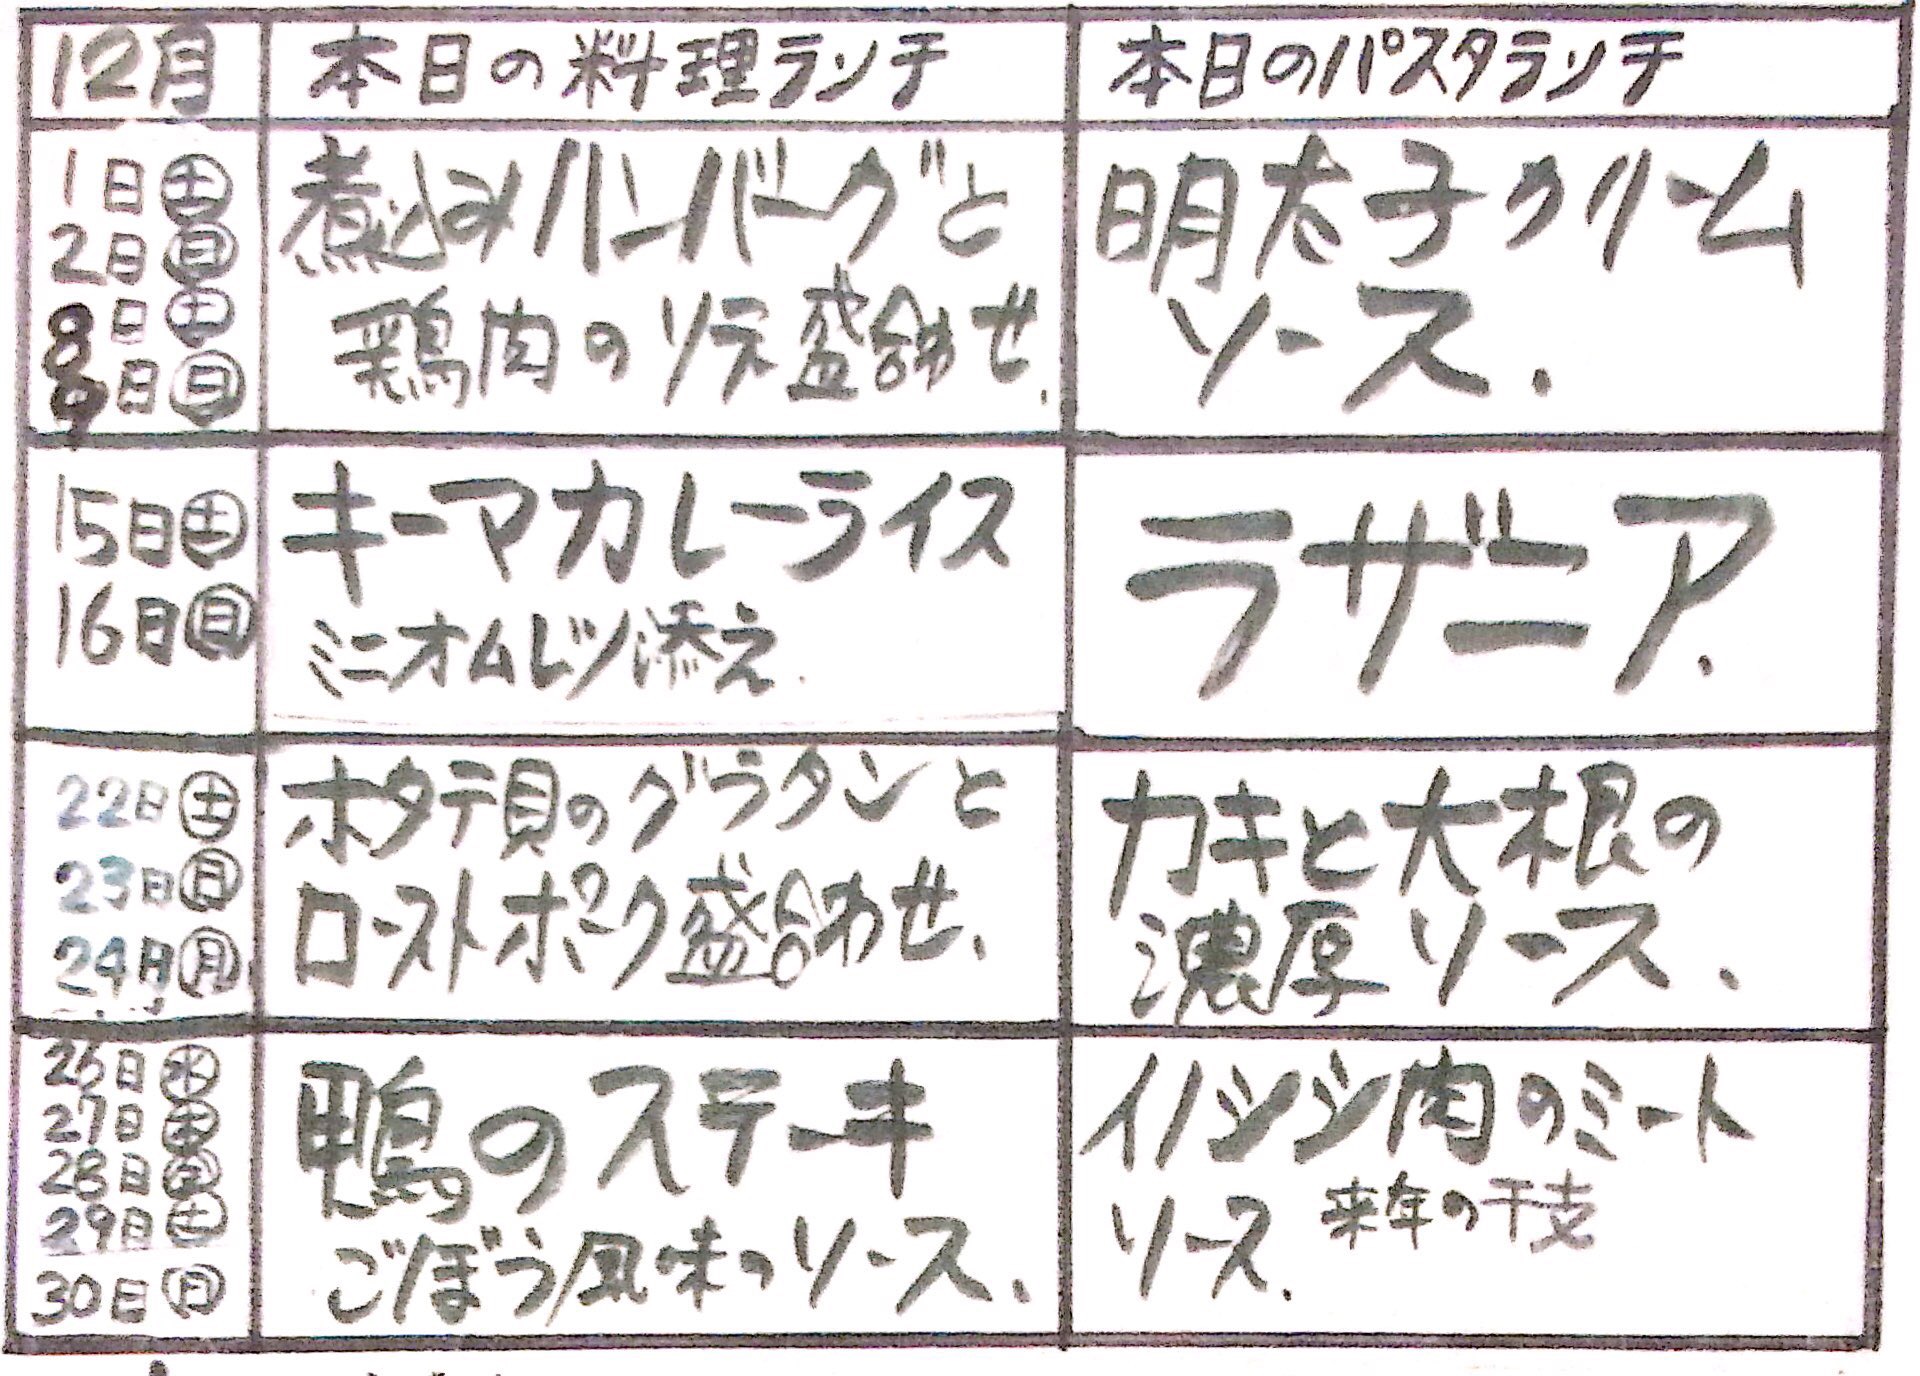 12月
本日の料理ランチ
本日のパスタランチ
1日(土)
2日(日)
8日(土)
9日(日)
煮込みハンバーグと
鶏肉のソテー盛合わせ.
明太子クリーム
ソース.
15日(土)
16日(日)
キーマカレーライス
ミニオムレツ添え.
ラザニア.
22日(土)
23日(日)
24日(月)
ホタテ貝のグラタンと
ローストポーク盛合わせ.
カキと大根の
濃厚ソース.
26日(水)
27日(木)
28日(金)
29日(土)
30日(日)
鴨のステーキ
ごぼう風味のソース.
イノシシ肉のミート
ソース. 来年の干支